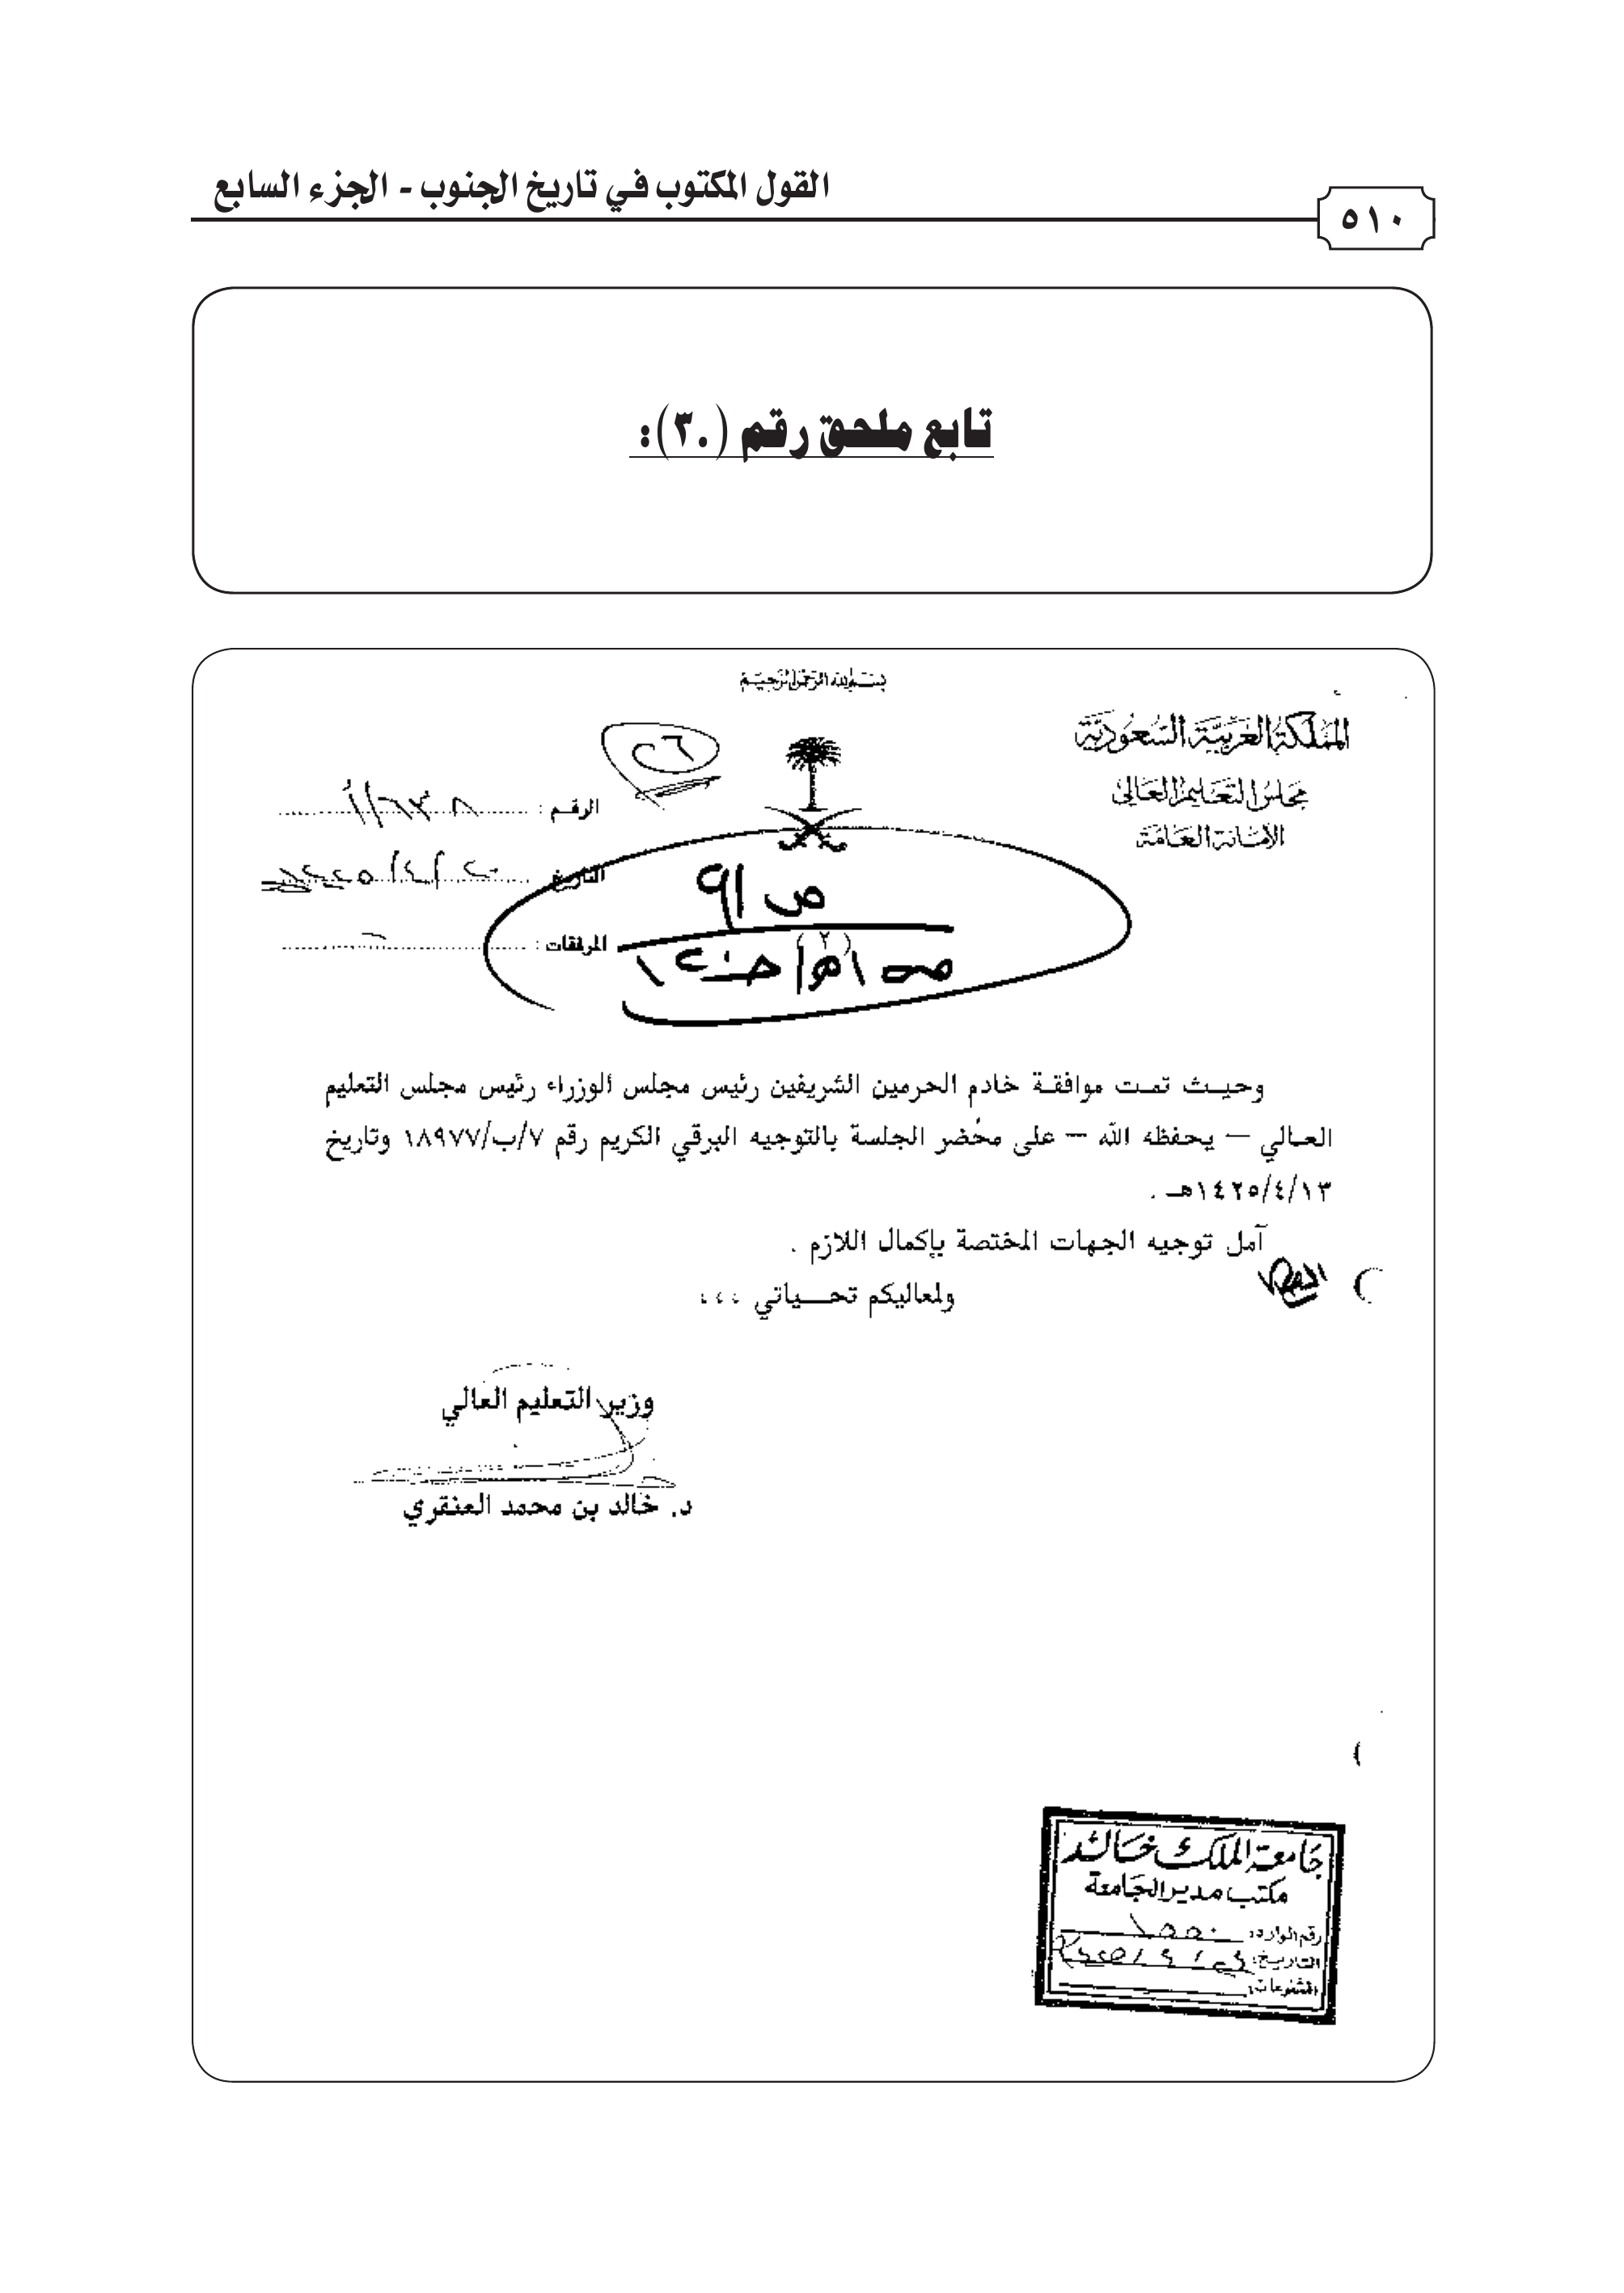 القول المكتوب في تاريخ الجنوب - الجزء السابع
٥١٠
تابع ملحق رقم (٣٠):
بسم الله الرحمن الرحيم
المملكة العربية السعودية
مجلس التعليم العالي
الأمانة العامة
٢٦
الرقم :
التاريخ
المرفقات :
(٢)
وحيث تمت موافقة خادم الحرمين الشريفين رئيس مجلس الوزراء رئيس مجلس التعليم
العالي – يحفظه الله – على محضر الجلسة بالتوجيه البرقي الكريم رقم ٧/ب/١٨٩٧٧ وتاريخ
١٤٢٥/٤/١٣هـ .
آمل توجيه الجهات المختصة بإكمال اللازم .
ولمعاليكم تحـــياتي ،،،
وزير التعليم العالي
د. خالد بن محمد العنقري
جامعة الملك خالد
مكتب مدير الجامعة
رقم الوارد:
التاريخ:
المشفوعات: